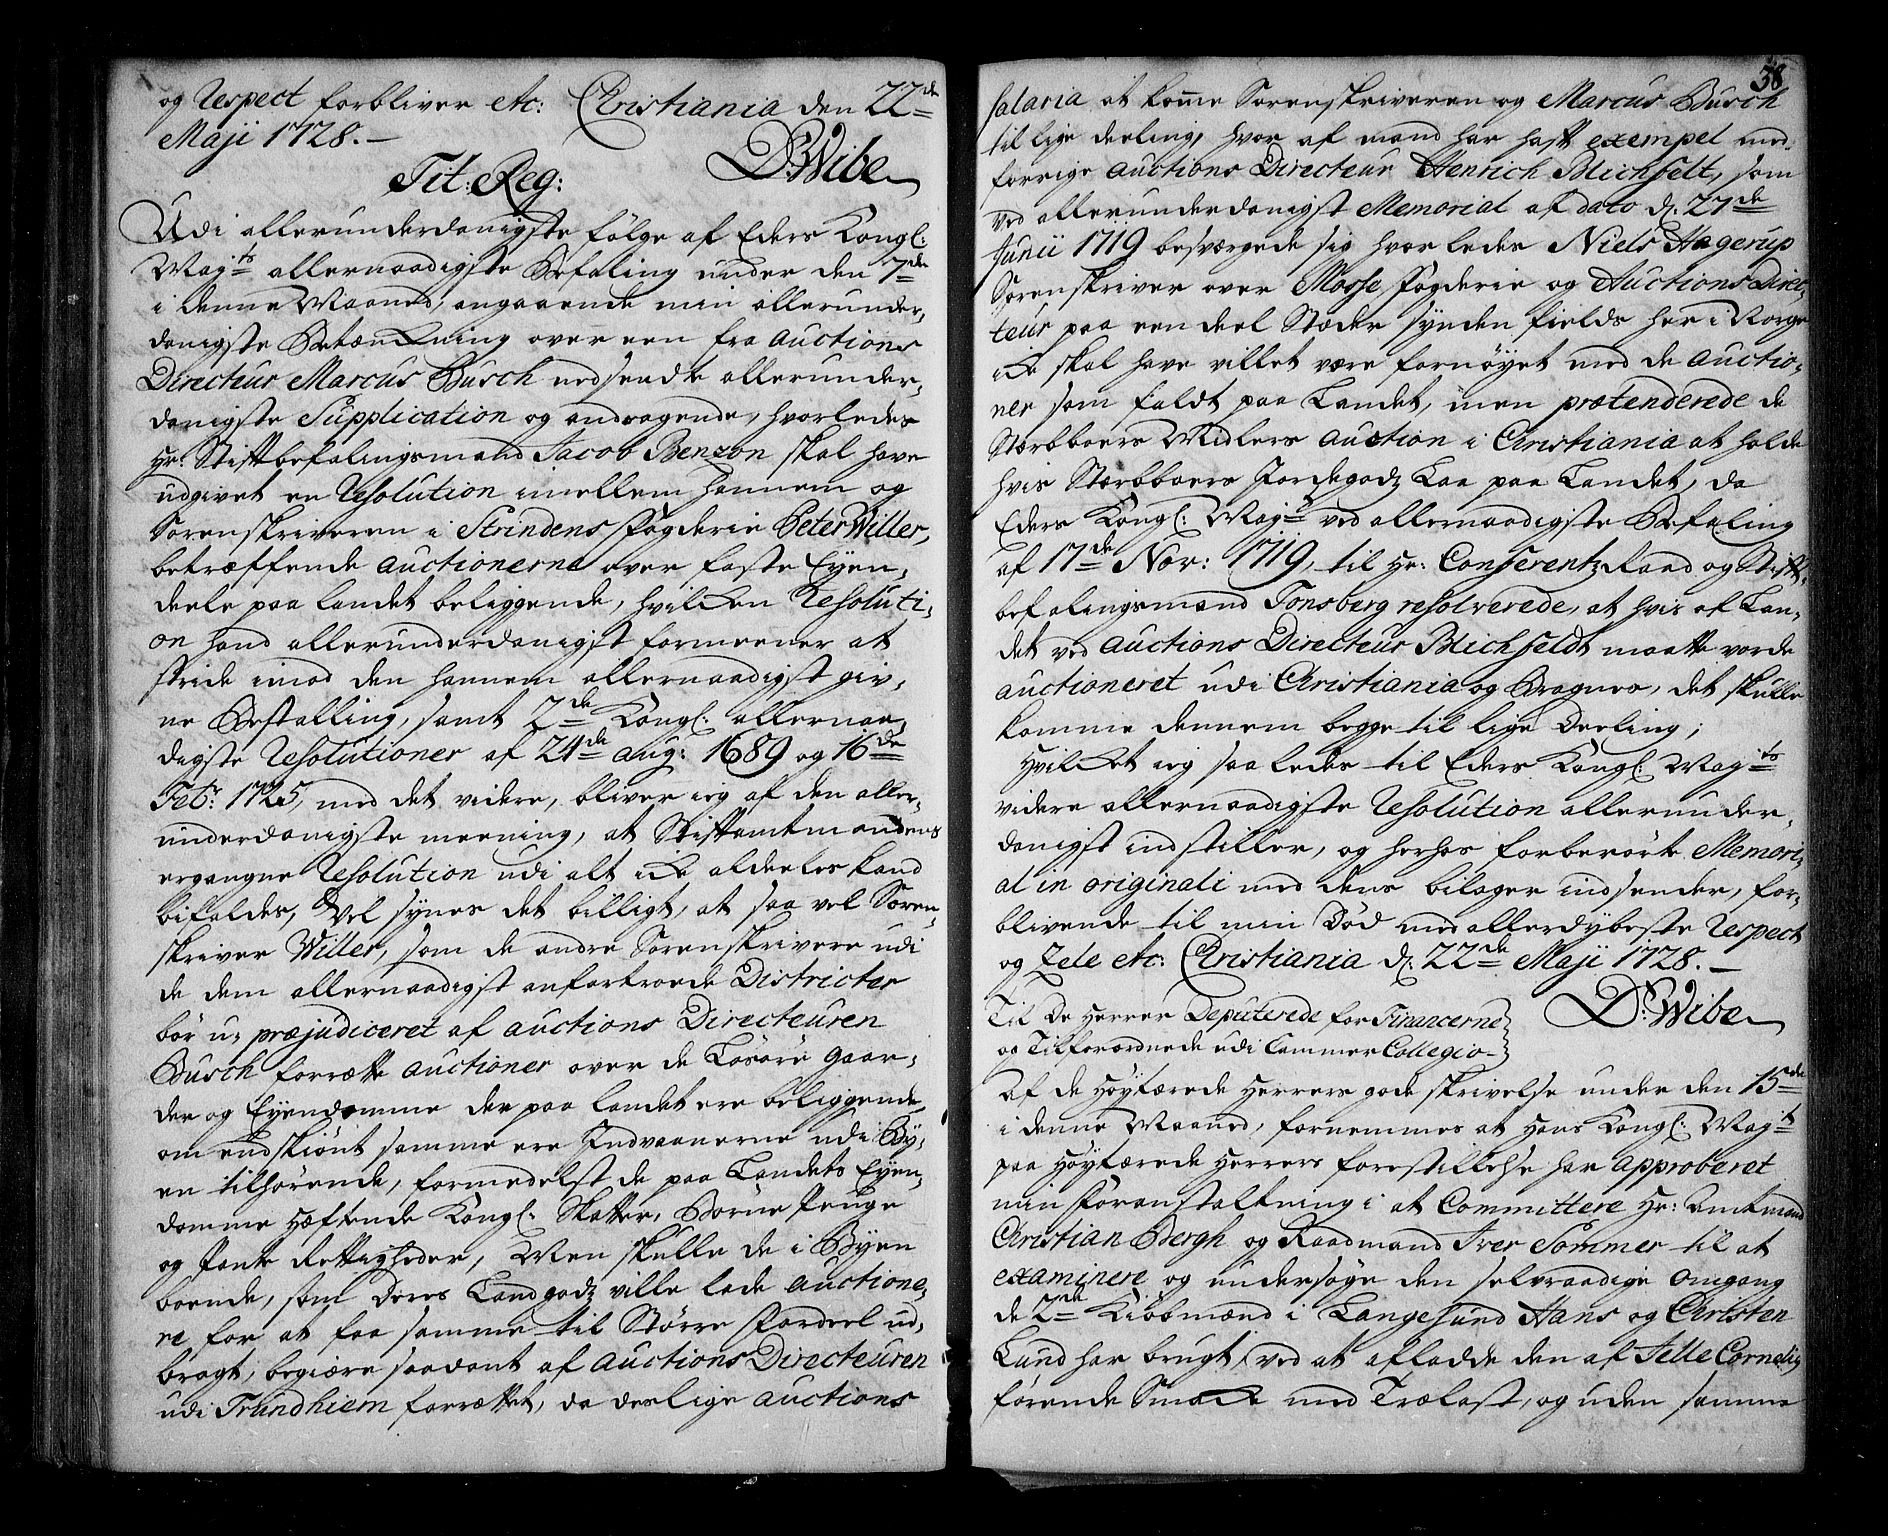 og Respect forbliver etc: Christiania den 22de
Maji 1728.–
D: Wibe
Tit: Reg:
Udi allerunderdanigste følge af Eders Kongl:
Majts allernaadigste Befaling under den 7de
i denne Maaned, angaaende min allerunder,
danigste Betænkning over een fra Auctions
Directeur Marcus Busch nedsendte allerunder,
danigste Supplication og andragende, hvorledes
Hr: Stiftbefalingsmand Jacob Benzon skal have
udgivet en Resolution imellem hannem og
Sorenskriveren i Strindens Fogderie Peter Willer,
betræffende auctionerne over faste Eyen,
deele paa landet beliggende, hvilken Resoluti,
on hand allerunderdanigst formeener at
stride imod den hannem allernaadigst giv,
ne Bestalling, samt 2de Kongl: allernaa,
digste Resolutioner af 24de aug: 1689 og 16de
Febr: 1725, med det videre, bliver ieg af den aller,
underdanigste meening, at Stiftamtmandens
ergangne Resolution udi alt ike aldeeles kand
bifaldes, Vel synes det billigt, at saa vel Soren,
skriver Willer, som de andre Sorenskrivere udi
de dem allernaadigst anfortroede Districter
bør u, præjudiceret af auctions Directeuren
Busch forrætte auctioner over de Løsøre Gaar,
der og Eyendomme der paa landet ere beliggende,
om endskiønt samme ere Indvaanerne udi By,
en tilhørende, formedelst de paa Landets Eyen,
domme hæftende Kongl: Skatter, Borne Penge
og Pante Rettigheder, Men skulle de i Byen
boende, som deres Landgodz ville lade auctione,
re for at faa samme til Større Fordeel ud,
bragt, begiære saadant af Auctions Directeuren
udi Trundhiem forrættet, da deslige auctions
58
salaria at komme Sorenskriveren og Marcus Busch
til lige deeling, hvor af mand har haft exempel med
forrige auctions Directeur Henrich Bichfelt, som
ved allerunderdanigst Memorial af dato d: 27de
Junii 1719 besværgede sig hvorledes Niels Hagerup
Sorenskriver over Mosse Fogderie og Auctions Direc,
teur paa een deel Stæder synden fields her i Norge
ike skal have villet være fornøyet med de auctio,
ner som faldt paa Landet, men prætenderede de
Stærboers Midlers auction i Christiania at holde
hvis Stærboers Jordegodz Laa paa Landet, da
Eders Kongl: Majt ved allernaadigste Befaling
af 17de Nov: 1719, til Hr: Conferentz Raad og Stift,
befalingsmand Tonsberg resolverede, at hvis af Lan,
det ved auctions Directeur Bichfeldt maatte vorde
auctioneret udi Christiania og Bragnes, det skulle
komme dennem begge til lige Deeling;
Hvilket ieg saaledes til Eders Kongl: Majts
videre allernaadigste Resolution allerunder,
danigst indstiller, og herhos forberørte Memori,
al in originali med dens bilager indsender, for,
blivende til min Død med allerdybeste Respect
og Zele etc: Christiania d: 22de Maji 1728.–
D: Wibe
Til De Herrer Deputerede for Financerne
og Tilforordnede udi Cammer Collegio–
Af de Høyfærede Herrers gode skrivelse under den 15de
i denne Maaned, fornemmes at Hans Kongl: Majt
paa Høyfærede Herrers forestillelse har approberet
min Foranstaltning i at Committere Hr: Amtmand
Christian Bergh og Raadmand Iver Sommer til at
examinere og undersøge den selvraadige omgang
de 2de Kiøbmænd i Langesund Hans og Christen
Lund har brugt, ved at afladde den af Jelle Cornelis
førende Smake med Trælast, og uden samme